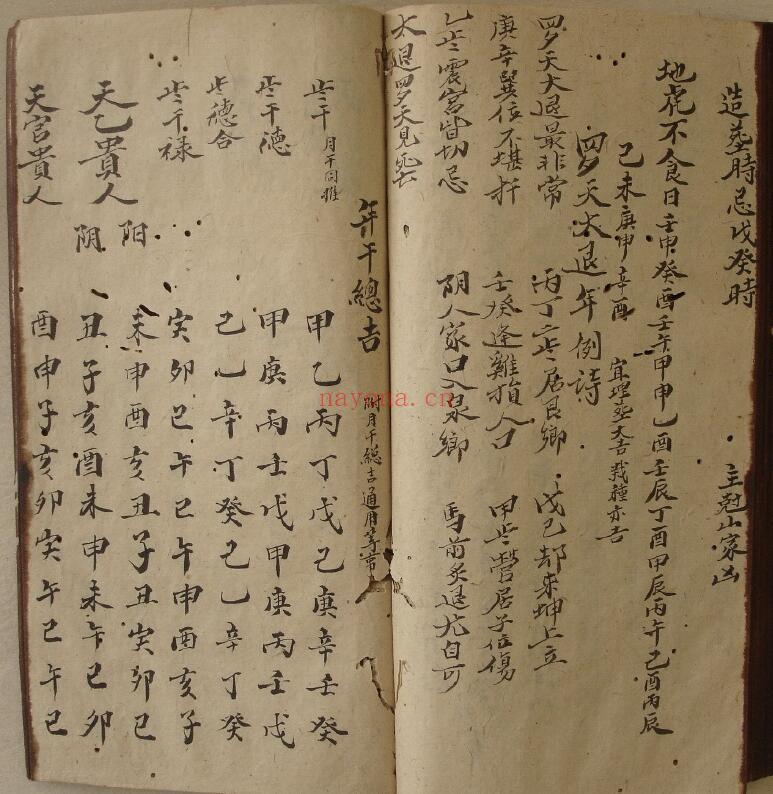 造葬時忌戊癸時 主尅山家凶
地虎不食日壬申癸酉壬午甲申乙酉壬辰丁酉甲辰丙午己酉丙辰
己未庚申辛酉 宜埋葬大吉栽種亦吉
四大天退年例詩
天大退最非常 丙丁居艮鄉 戊己却来坤上立
庚辛巽位不堪扦 壬癸逢雞損人口 甲营居子位傷
乙震宫皆切忌 阴人家口入泉鄉 馬前炙退尤自可
大退天見死亡
年干總吉 附月干總吉通用等言
干 月干同推 甲乙丙丁戊己庚辛壬癸
干德 甲庚丙壬戊甲庚丙壬戊
德合 己乙辛丁癸己乙辛丁癸
干禄 寅卯巳午巳午申酉亥子
天乙貴人 阳 未申酉亥丑子丑寅卯巳
阴 丑子亥酉未申未午巳卯
天官貴人 酉申子亥卯寅午巳午巳
nayona.cn